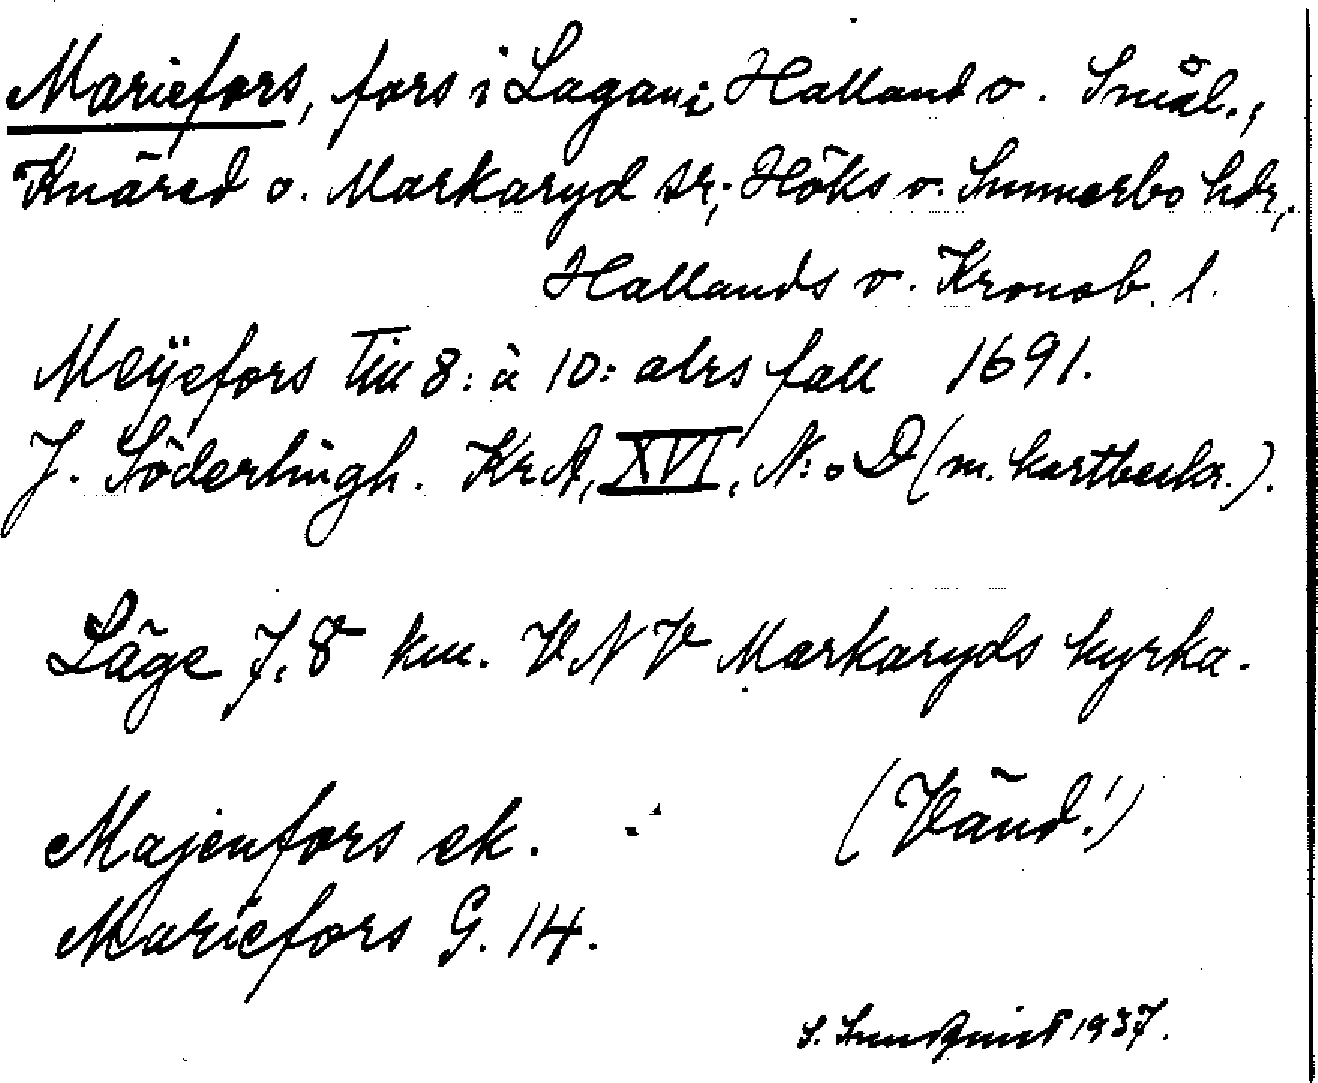 Mariefors, fors i Lagan i Halland o. Smål.,
Knäred o. Markaryd sr; Höks o. Sunnerbo hdr,
Hallands o. Kronob. l.
Meÿefors Till 8: à 10: alrs fall 1691.
J. Söderlingh. KrA, XVI, N:o D (m. kartbeskr.).
Läge 7,8 km. VNV Markaryds kyrka.
(Vänd!)
Majenfors ek.
Mariefors G. 14.
S. Sundquist 1937.